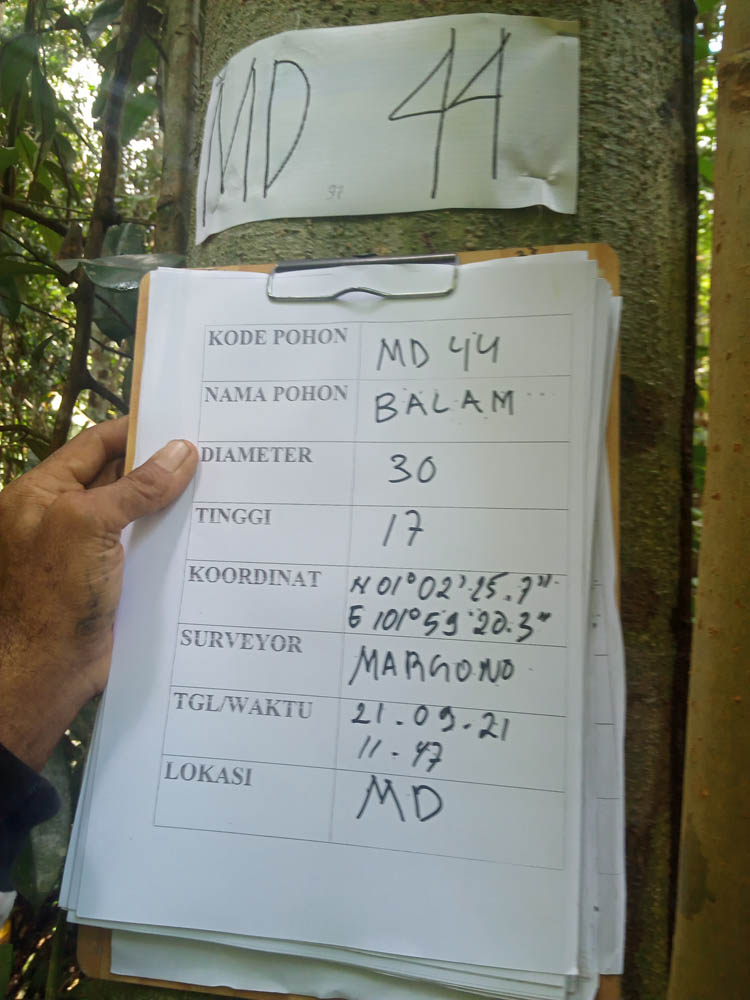 MD 44
KODE POHON MD 44
NAMA POHON BALAM
DIAMETER 30
TINGGI 17
KOORDINAT N 01° 02' 25.7"
E 101° 59' 20.3"
SURVEYOR MARGONO
TGL/WAKTU 21.09.21
11.47
LOKASI MD